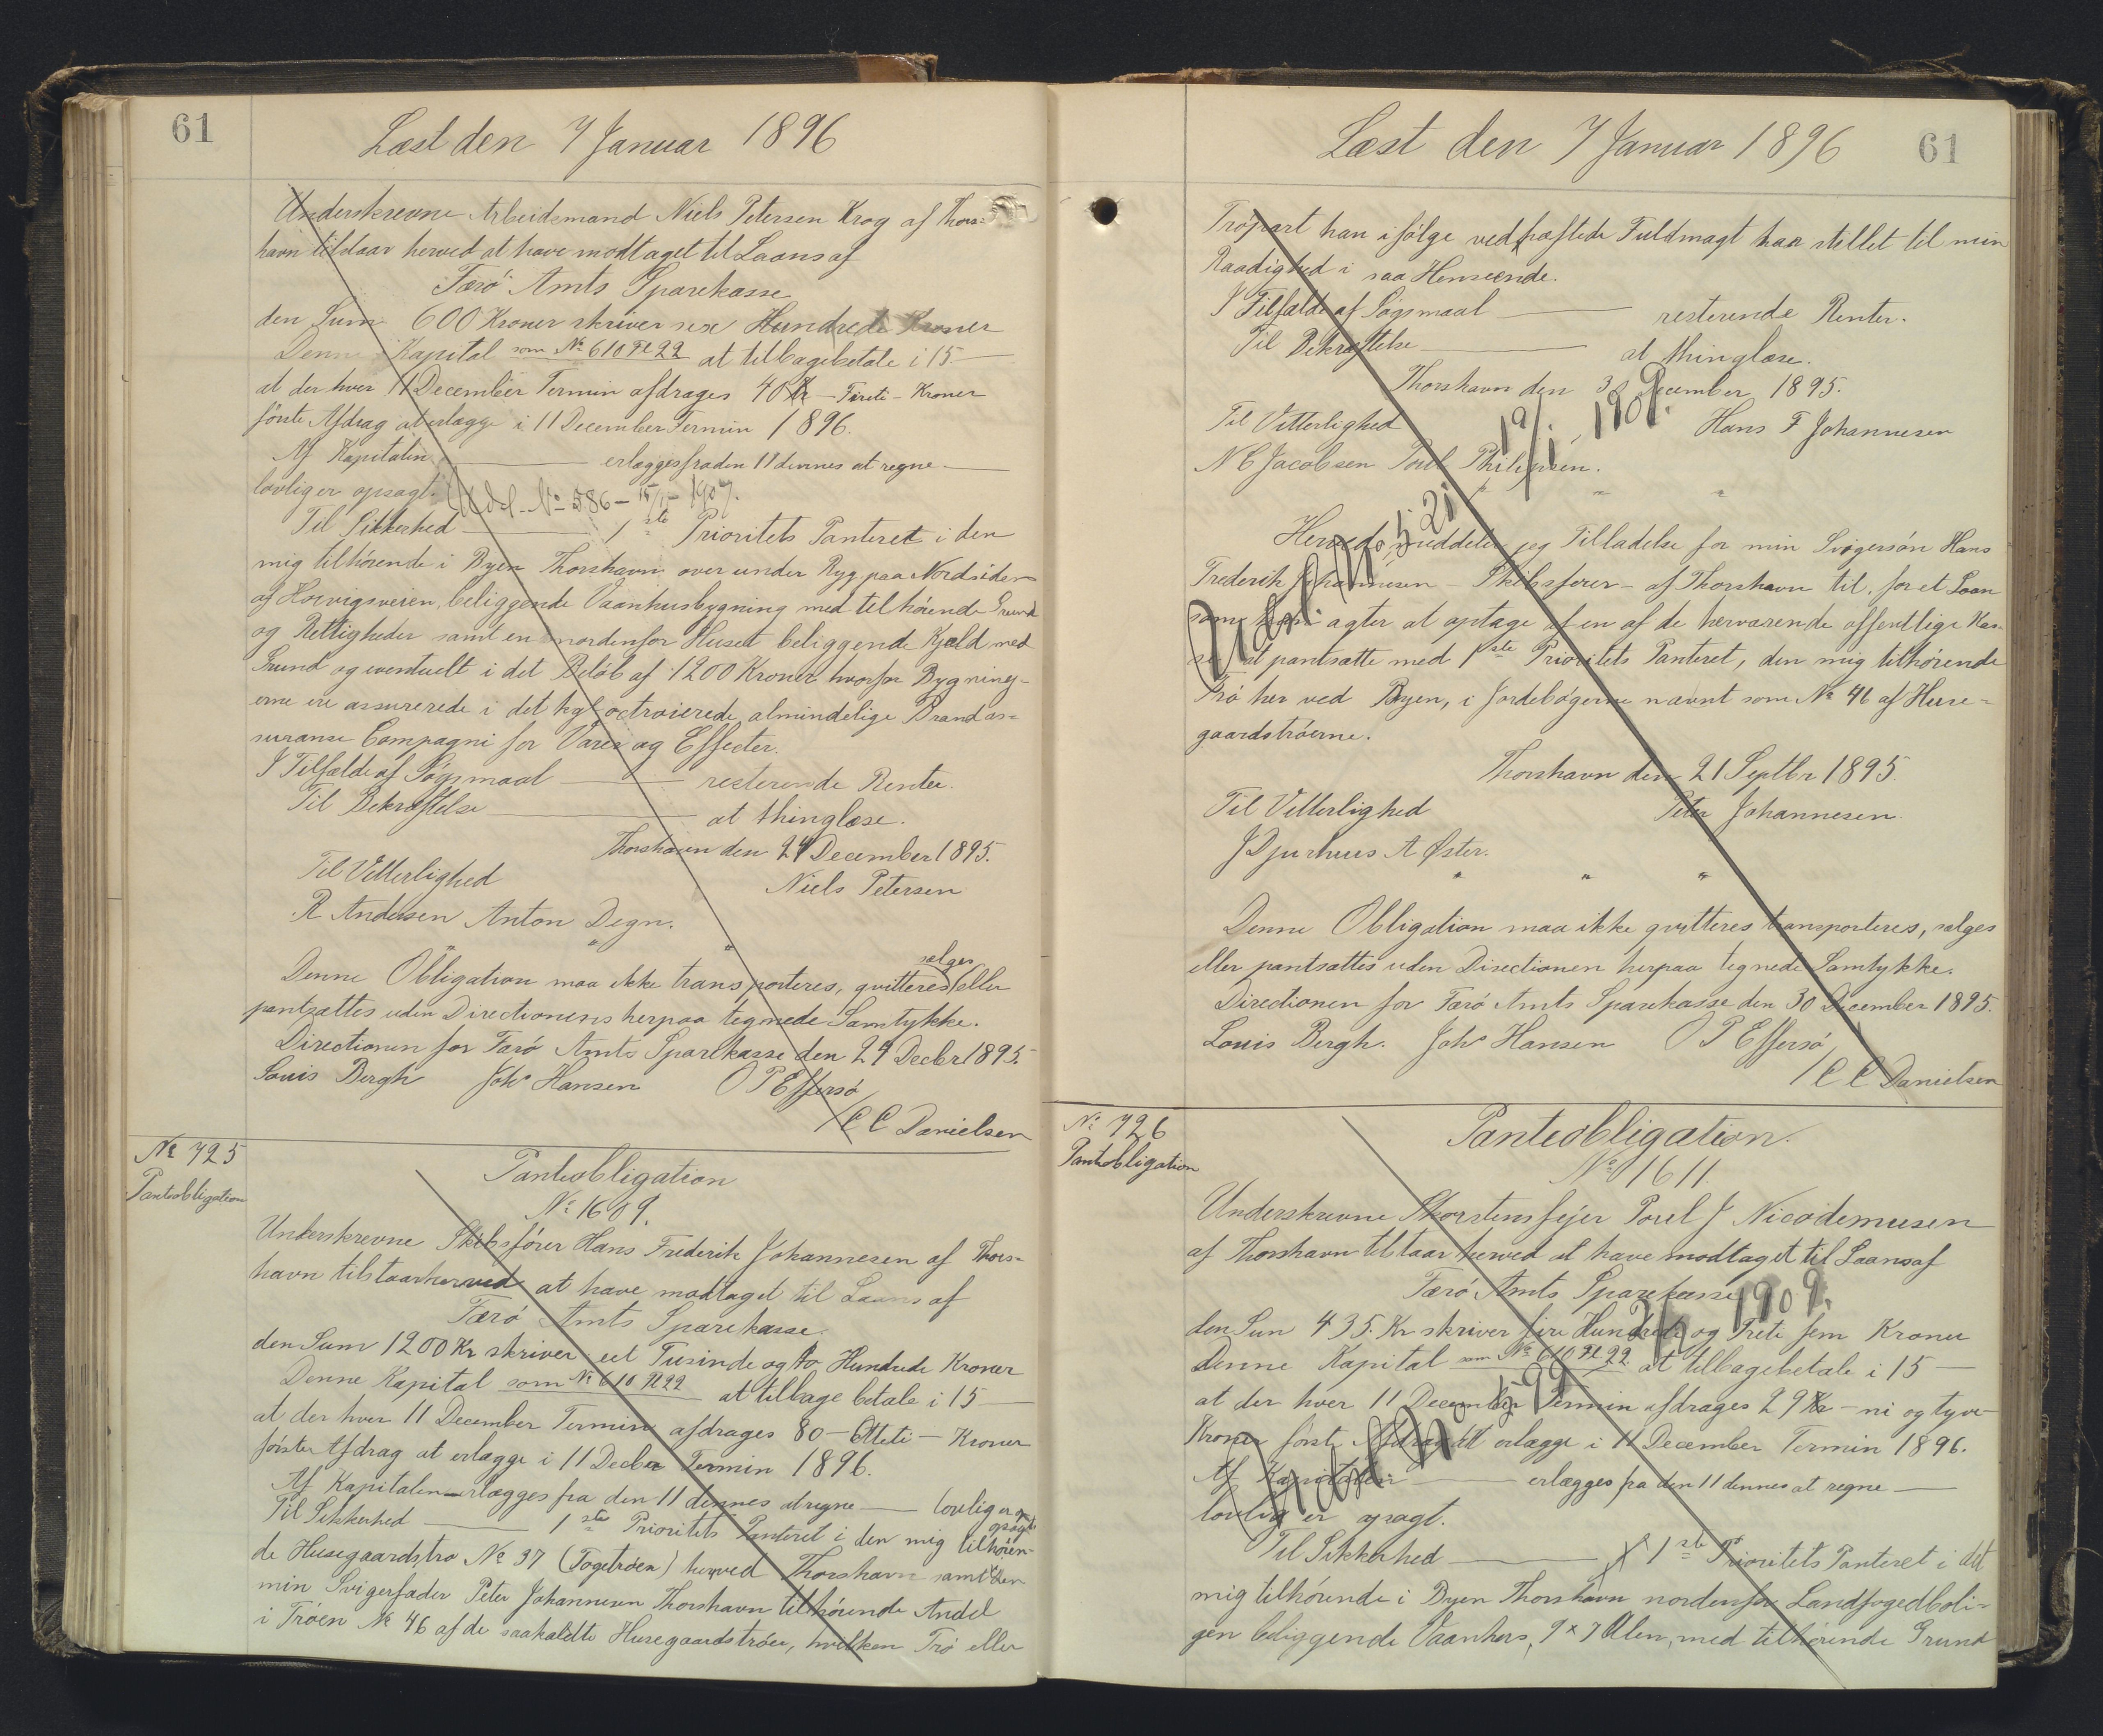 61
Læst den 7 Januar 1896
Underskrevne Arbeidsmand Niels Petersen Krog af Thors=
havn tilstaar herved at have modtaget til Laans af
Færö Amts Sparekasse
den Sum 600 Kroner skriver sex Hundrede Kroner
Denne Kapital som No 610 Fl 22 at tilbagebetale i 15 —
at der hver 11 December Termin afdrages 40 Kr – Fireti – Kroner
förste Afdrag at erlægge i 11 December Termin 1896.
Af Kapitalen — erlægges fra den 11 dennes at regne —
lovlig er opsagt. (Udsl. No 586 – 15/1 – 1907.
Til Sikkerhed — 1ste Prioritets Panteret i den
mig tilhörende i Byen Thorshavn over under Ryg paa Nordsiden
af Hoivigsveien, beliggende Vaanhusbygning med tilhörende Grund
og Rettigheder samt en nordenfor Huset beliggende Kjæld med
Grund og eventuelt i det Belöb af 1200 Kroner hvorfor Bygning-
erne ere assurerede i det kgl octroierede, almindelige Brandas=
surance Compagni for Varer og Effecter.
I Tilfælde af Sögsmaal — resterende Renter.
Til Bekræftelse — at thinglæse.
Thorshavn den 24 December 1895.
Til Vitterlighed
Niels Petersen
R Andersen Anton Degn.
" "
sælges
Denne Obligation maa ikke transporteres, qvitteres eller
pantsættes uden Directionens herpaa tegnede Samtykke.
Directionen for Færö Amts Sparekasse den 24 Decbr 1895.
Louis Bergh Johs Hansen O P Effersö
/ C C Danielsen
No 725
Panteobligation
Panteobligation
No 1609.
Underskrevne Skibsförer Hans Frederik Johannesen af Thors=
havn tilstaar herved at have modtaget til Laans af
Færö Amts Sparekasse.
den Sum 1200 Kr skriver eet Tusinde og to Hundrede Kroner
Denne Kapital som No 610 Fl 22 at tilbage betale i 15 —
at der hver 11 December Termin afdrages 80 – Otteti – Kroner
förster Afdrag at erlægge i 11 Decbr Termin 1896.
Af Kapitalen — erlægges fra den 11 dennes at regne — lovlig er
opsagt
Til Sikkerhed — 1ste Prioritets Panteret i den mig tilhören-
de Husegaardströ No 37 (Fogetröen) herved Thorshavn samt den
min Svigerfader Peter Johannesen Thorshavn tilhörende Andel
i Tröen No 46 af de saakaldte Husegaardströer, hvilken Trö eller
Læst den 7 Januar 1896
61
Tröpart han ifölge vedhæftede Fuldmagt har stillet til min
Raadighed i saa Henseende.
I Tilfælde af Sögsmaal — resterende Renter.
Til Bekræftelse — at thinglæse.
Thorshavn den 30 December 1895.
Til Vitterlighed
Hans F Johannesen
N C Jacobsen Poul Philipsen.
" " "
Herved meddeler jeg Tilladelse for min Svigersön Hans
Frederik Johannesen – Skibsförer – af Thorshavn til, for et Laan
som han agter at optage af en af de herværende offentlige Kas
ser, at pantsætte med 1ste Prioritets Panteret, den mig tilhörende
Trö her ved Byen, i Jordebögerne nævnt som No 46 af Huse=
gaardströerne.
Thorshavn den 21 Septbr 1895.
Til Vitterlighed
Peter Johannesen.
J Djurhuus A Øster.
" " "
Denne Obligation maa ikke qvitteres transporteres, sælges
eller pantsættes uden Directionen herpaa tegnede Samtykke.
Directionen for Færö Amts Sparekasse den 30 December 1895.
Louis Bergh. Johs Hansen O P Effersö
/ C C Danielsen
No 726
Panteobligation
Panteobligation.
No 1611.
Underskrevne Skorstensfejer Poul J Nicodemusen
af Thorshavn tilstaar herved at have modtaget til Laans af
Færö Amts Sparekasse
den Sum 435. Kr skriver fire Hundrede og Treti fem Kroner
Denne Kapital som No 610 Fl 22. at tilbagebetale i 15 —
at der hver 11 December Termin afdrages 29 Kr – ni og tyve
Kroner förste Afdrag at erlægge i 11 December Termin 1896.
Af Kapitalen — erlægges fra den 11 dennes at regne —
lovlig er opsagt.
Til Sikkerhed — 1ste Prioritets Panteret i det
mig tilhörende i Byen Thorshavn nordenfor Landfogedboli=
gen beliggende Vaanhus, 9 x 7 Alen, med tilhörende Grund